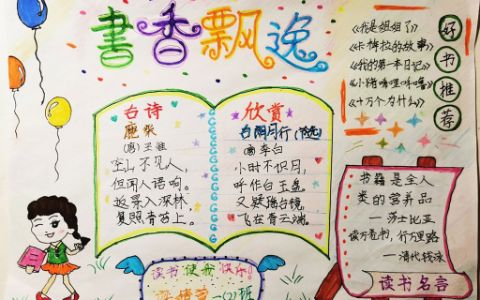 書香飘逸
《我是姐姐了》
《卡梅拉的故事》
《我的第一本日记》
《小猪唏哩呼噜》
《十万个为什么》
好书推荐
古诗
鹿柴
(唐)王维
空山不见人，
但闻人语响。
返景入深林，
复照青苔上。
欣赏
古朗月行(节选)
(唐)李白
小时不识月，
呼作白玉盘。
又疑瑶台镜，
飞在青云端。
书籍是全人
类的营养品
—莎士比亚
读万卷书，行万里路
—清代钱泳
读书名言
读书使我快乐!
一(2)班